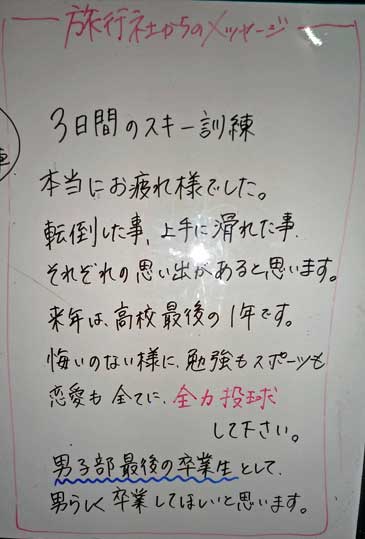 旅行社からのメッセージ
3日間のスキー訓練
本当にお疲れ様でした。
転倒した事、上手に滑れた事、
それぞれの思い出があると思います。
来年は、高校最後の1年です。
悔いのない様に、勉強もスポーツも
恋愛も全てに、全力投球
して下さい。
男子部最後の卒業生として、
男らしく卒業してほしいと思います。